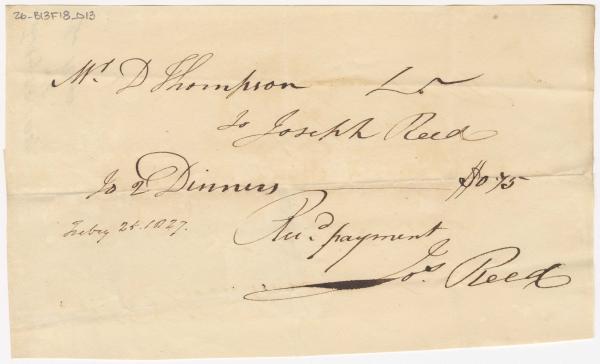 26-B13F18_D13
Mr. D Thompson Dr
To Joseph Reed
To 2 Dinners $0.75
Feby 25. 1827.
Recd payment
Jos. Reed